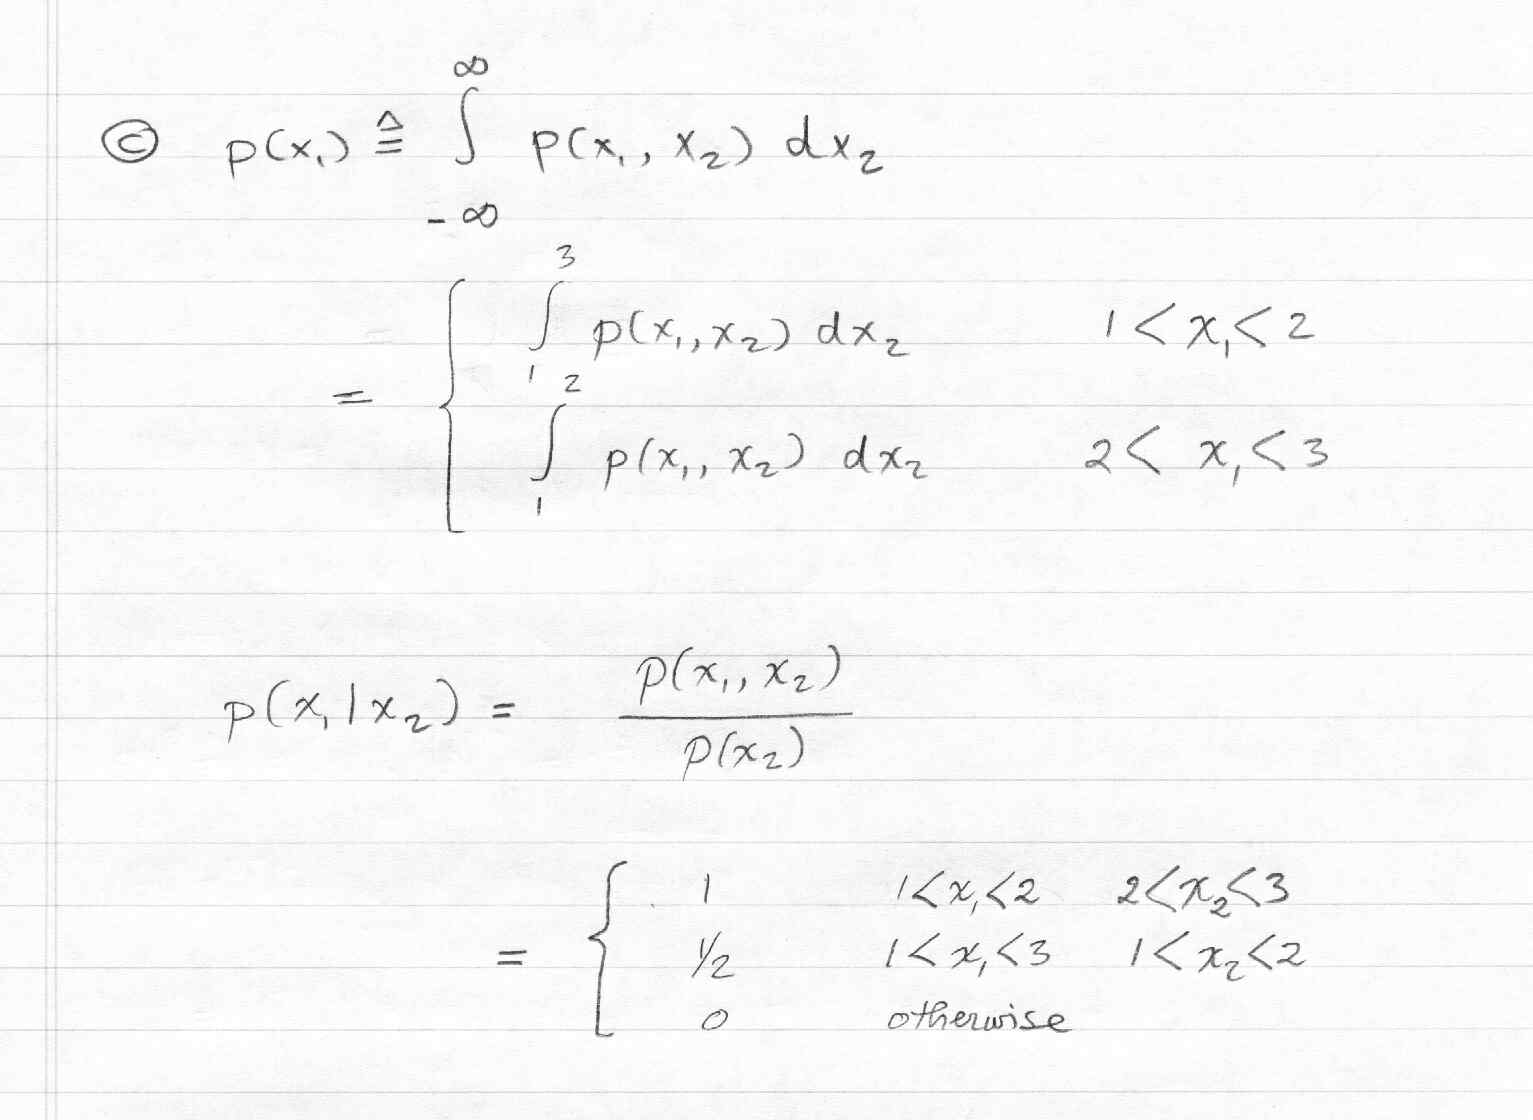 ⓒ p(x₁) ≜ ∫_{-∞}^{∞} p(x₁, x₂) dx₂
= { ∫_{1}^{3} p(x₁, x₂) dx₂    1 < x₁ < 2
∫_{1}^{2} p(x₁, x₂) dx₂    2 < x₁ < 3
p(x₁ | x₂) = p(x₁, x₂) / p(x₂)
= { 1    1 < x₁ < 2    2 < x₂ < 3
1/2    1 < x₁ < 3    1 < x₂ < 2
0    otherwise